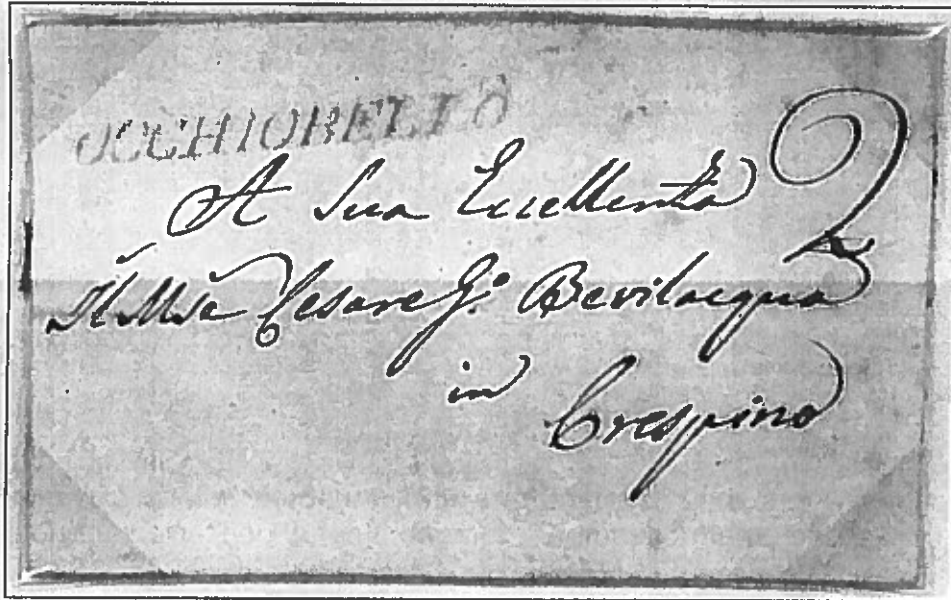 OCCHIOBELLO
2
A Sua Eccellenza
Il Mse Cesare Gi. Bevilacqua
in
Crespino